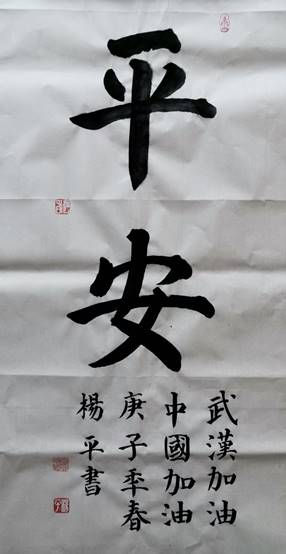 平安
武漢加油
中國加油
庚子季春
楊平書